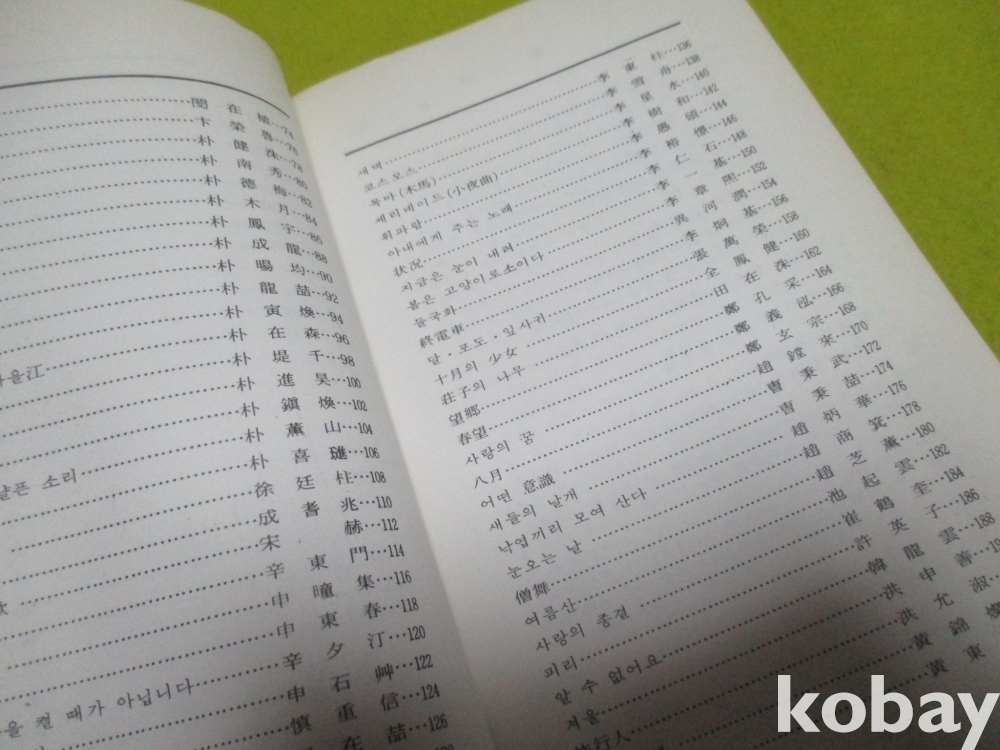 閔在植…74
卞榮魯…76
朴健洙…78
朴南秀…80
朴德梅…82
朴木月…84
朴鳳宇…86
朴成龍…88
朴暘均…90
朴龍喆…92
朴寅煥…94
을江 朴在森…96
朴堤千…98
朴進昊…100
朴鎭煥…102
픈 소리 朴薰山…104
朴喜璡…106
徐廷柱…108
成耆兆…110
宋 赫…112
辛東門…114
申瞳集…116
申東春…118
을 켤 때가 아닙니다 辛夕汀…120
申石艸…122
愼重信…124
在喆…126
새벽 李東柱…136
코스모스 李雪舟…138
목마(木馬) 李星水…140
세리네이드(小夜曲) 李樹和…142
휘파람 李愚頌…144
아내에게 주는 노래 李裕憬…146
状况 李仁石…148
지금은 눈이 내려 李一基…150
봄은 고양이로소이다 李章熙…152
들국화 異河潤…154
終電車 李炯基…156
달·포도·잎사귀 張萬榮…158
十月의 少女 全鳳健…160
荘子의 나무 田在洙…162
望鄕 鄭孔采…164
春望 鄭義泓…166
사랑의 꿈 鄭玄宗…168
八月 趙鏜來…170
어떤 意識 曺秉武…172
새들의 날개 曺秉喆…174
낙엽끼리 모여 산다 趙炳華…176
눈오는 날 趙商箕…178
僧舞 趙芝薰…180
여름산 池起雲…182
사랑의 종결 崔鶴奎…184
피리 許英子…186
알 수 없어요 韓龍雲…188
겨울 洪申善
旅行人 洪允淑
黃錦燦
黃東
kobay